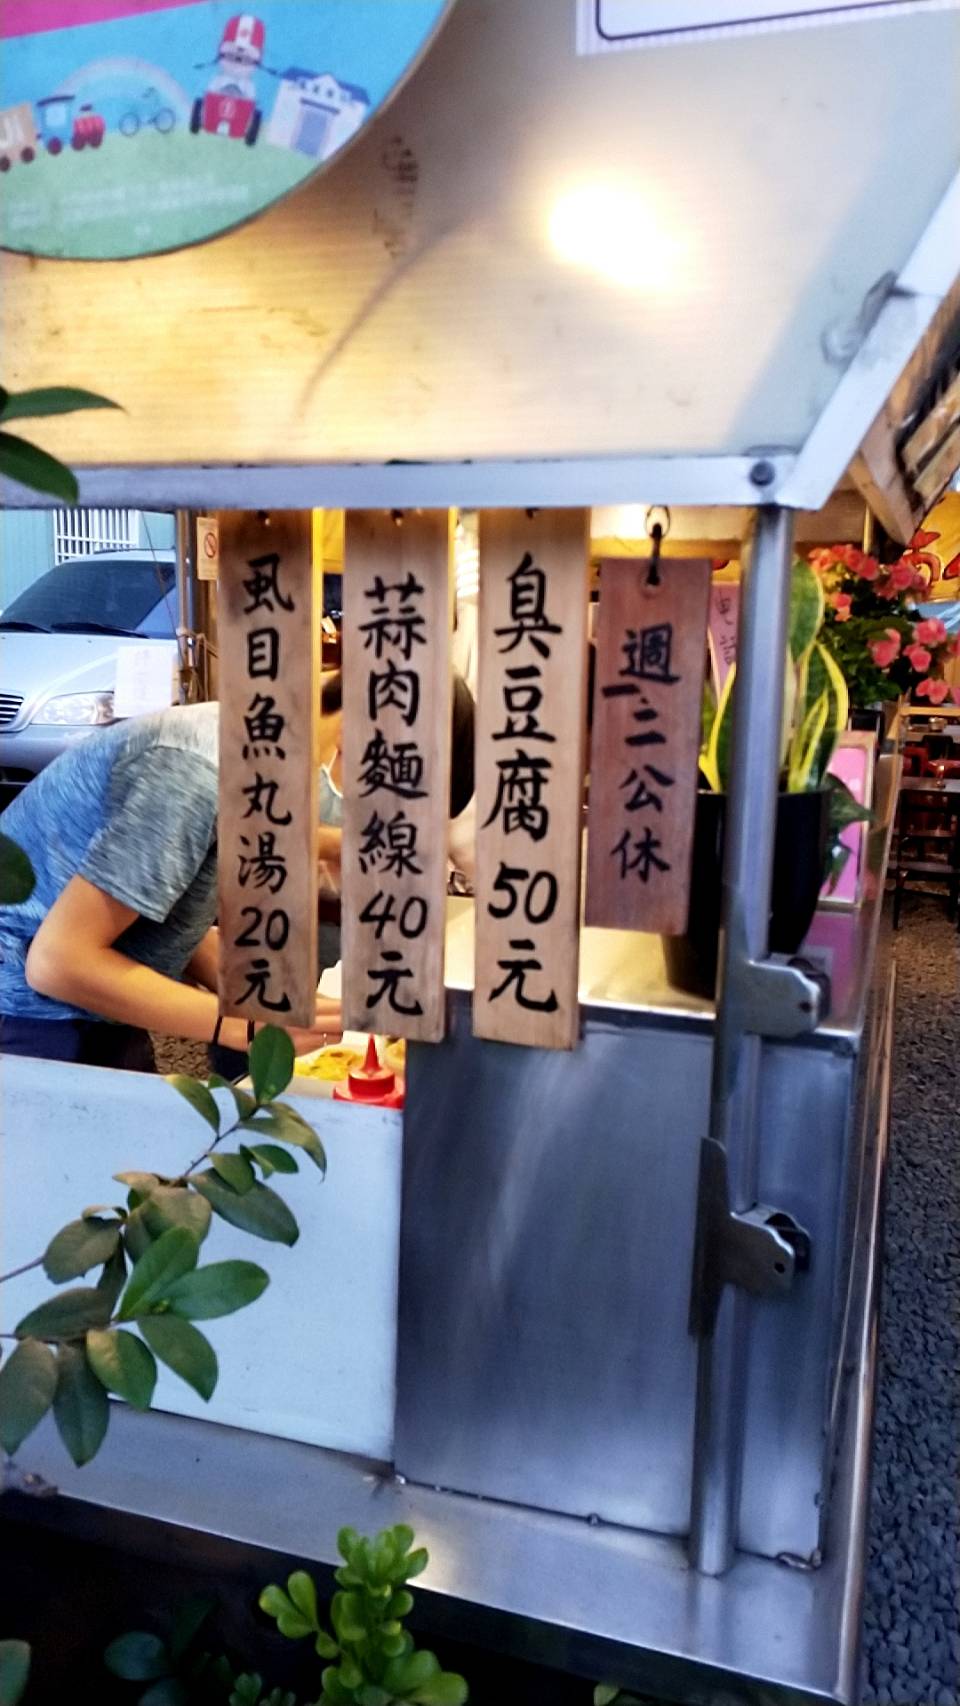 週一、二公休
臭豆腐50元
蒜肉麵線40元
虱目魚丸湯20元